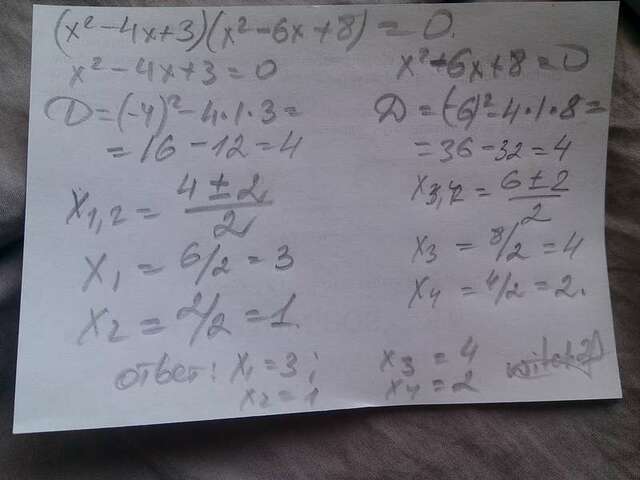 (x² - 4x + 3)(x² - 6x + 8) = 0.
x² - 4x + 3 = 0
D = (-4)² - 4·1·3 =
= 16 - 12 = 4
x₁,₂ = (4 ± 2)/2
x₁ = 6/2 = 3
x₂ = 2/2 = 1.
x² - 6x + 8 = 0
D = (-6)² - 4·1·8 =
= 36 - 32 = 4
x₃,₄ = (6 ± 2)/2
x₃ = 8/2 = 4
x₄ = 4/2 = 2.
ответ: x₁ = 3; x₃ = 4
x₂ = 1 x₄ = 2